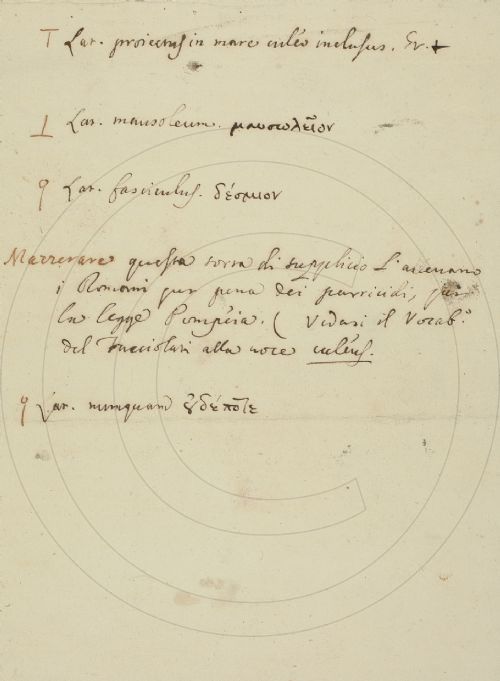 T Lat. proiectus in mare culeo inclusus. Gr. +
⊥ Lat. mausoleum. μαυσωλεῖον
q Lat. fasciculus. δέσμιον
Mazzerare questa sorta di supplicio l'avevano
i Romani per pena dei parricidi, per
la legge Pompeia. ( Vedasi il Vocab.°
del alla voce culeus.
q Lat. nunquam οὐδέποτε